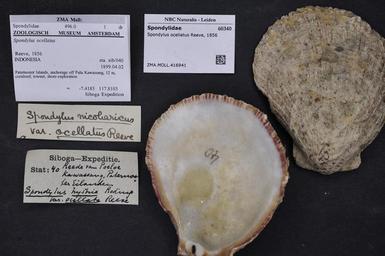 ZMA Moll.
Spondylidae 496.0 1 db
ZOOLOGISCH MUSEUM AMSTERDAM
Spondylus ocellatus
Reeve, 1856
INDONESIA ma. sib/040
1899.04.02
Paternoster Islands, anchorage off Pulu Kawassang, 12 m,
coralreef, trawel, shore-exploration
-7.4185 117.8103
Siboga Expedition
NBC Naturalis - Leiden
Spondylidae 60340
Spondylus ocellatus Reeve, 1856
ZMA.MOLL.416941
Spondylus nicobaricus
var. ocellatus Reeve
Siboga—Expeditie.
Stat: 40 Reede van Poeloe
Kawassang, Paternos-
ter Eilanden
Spondylus hystrix
var. ocellata Reeve
40